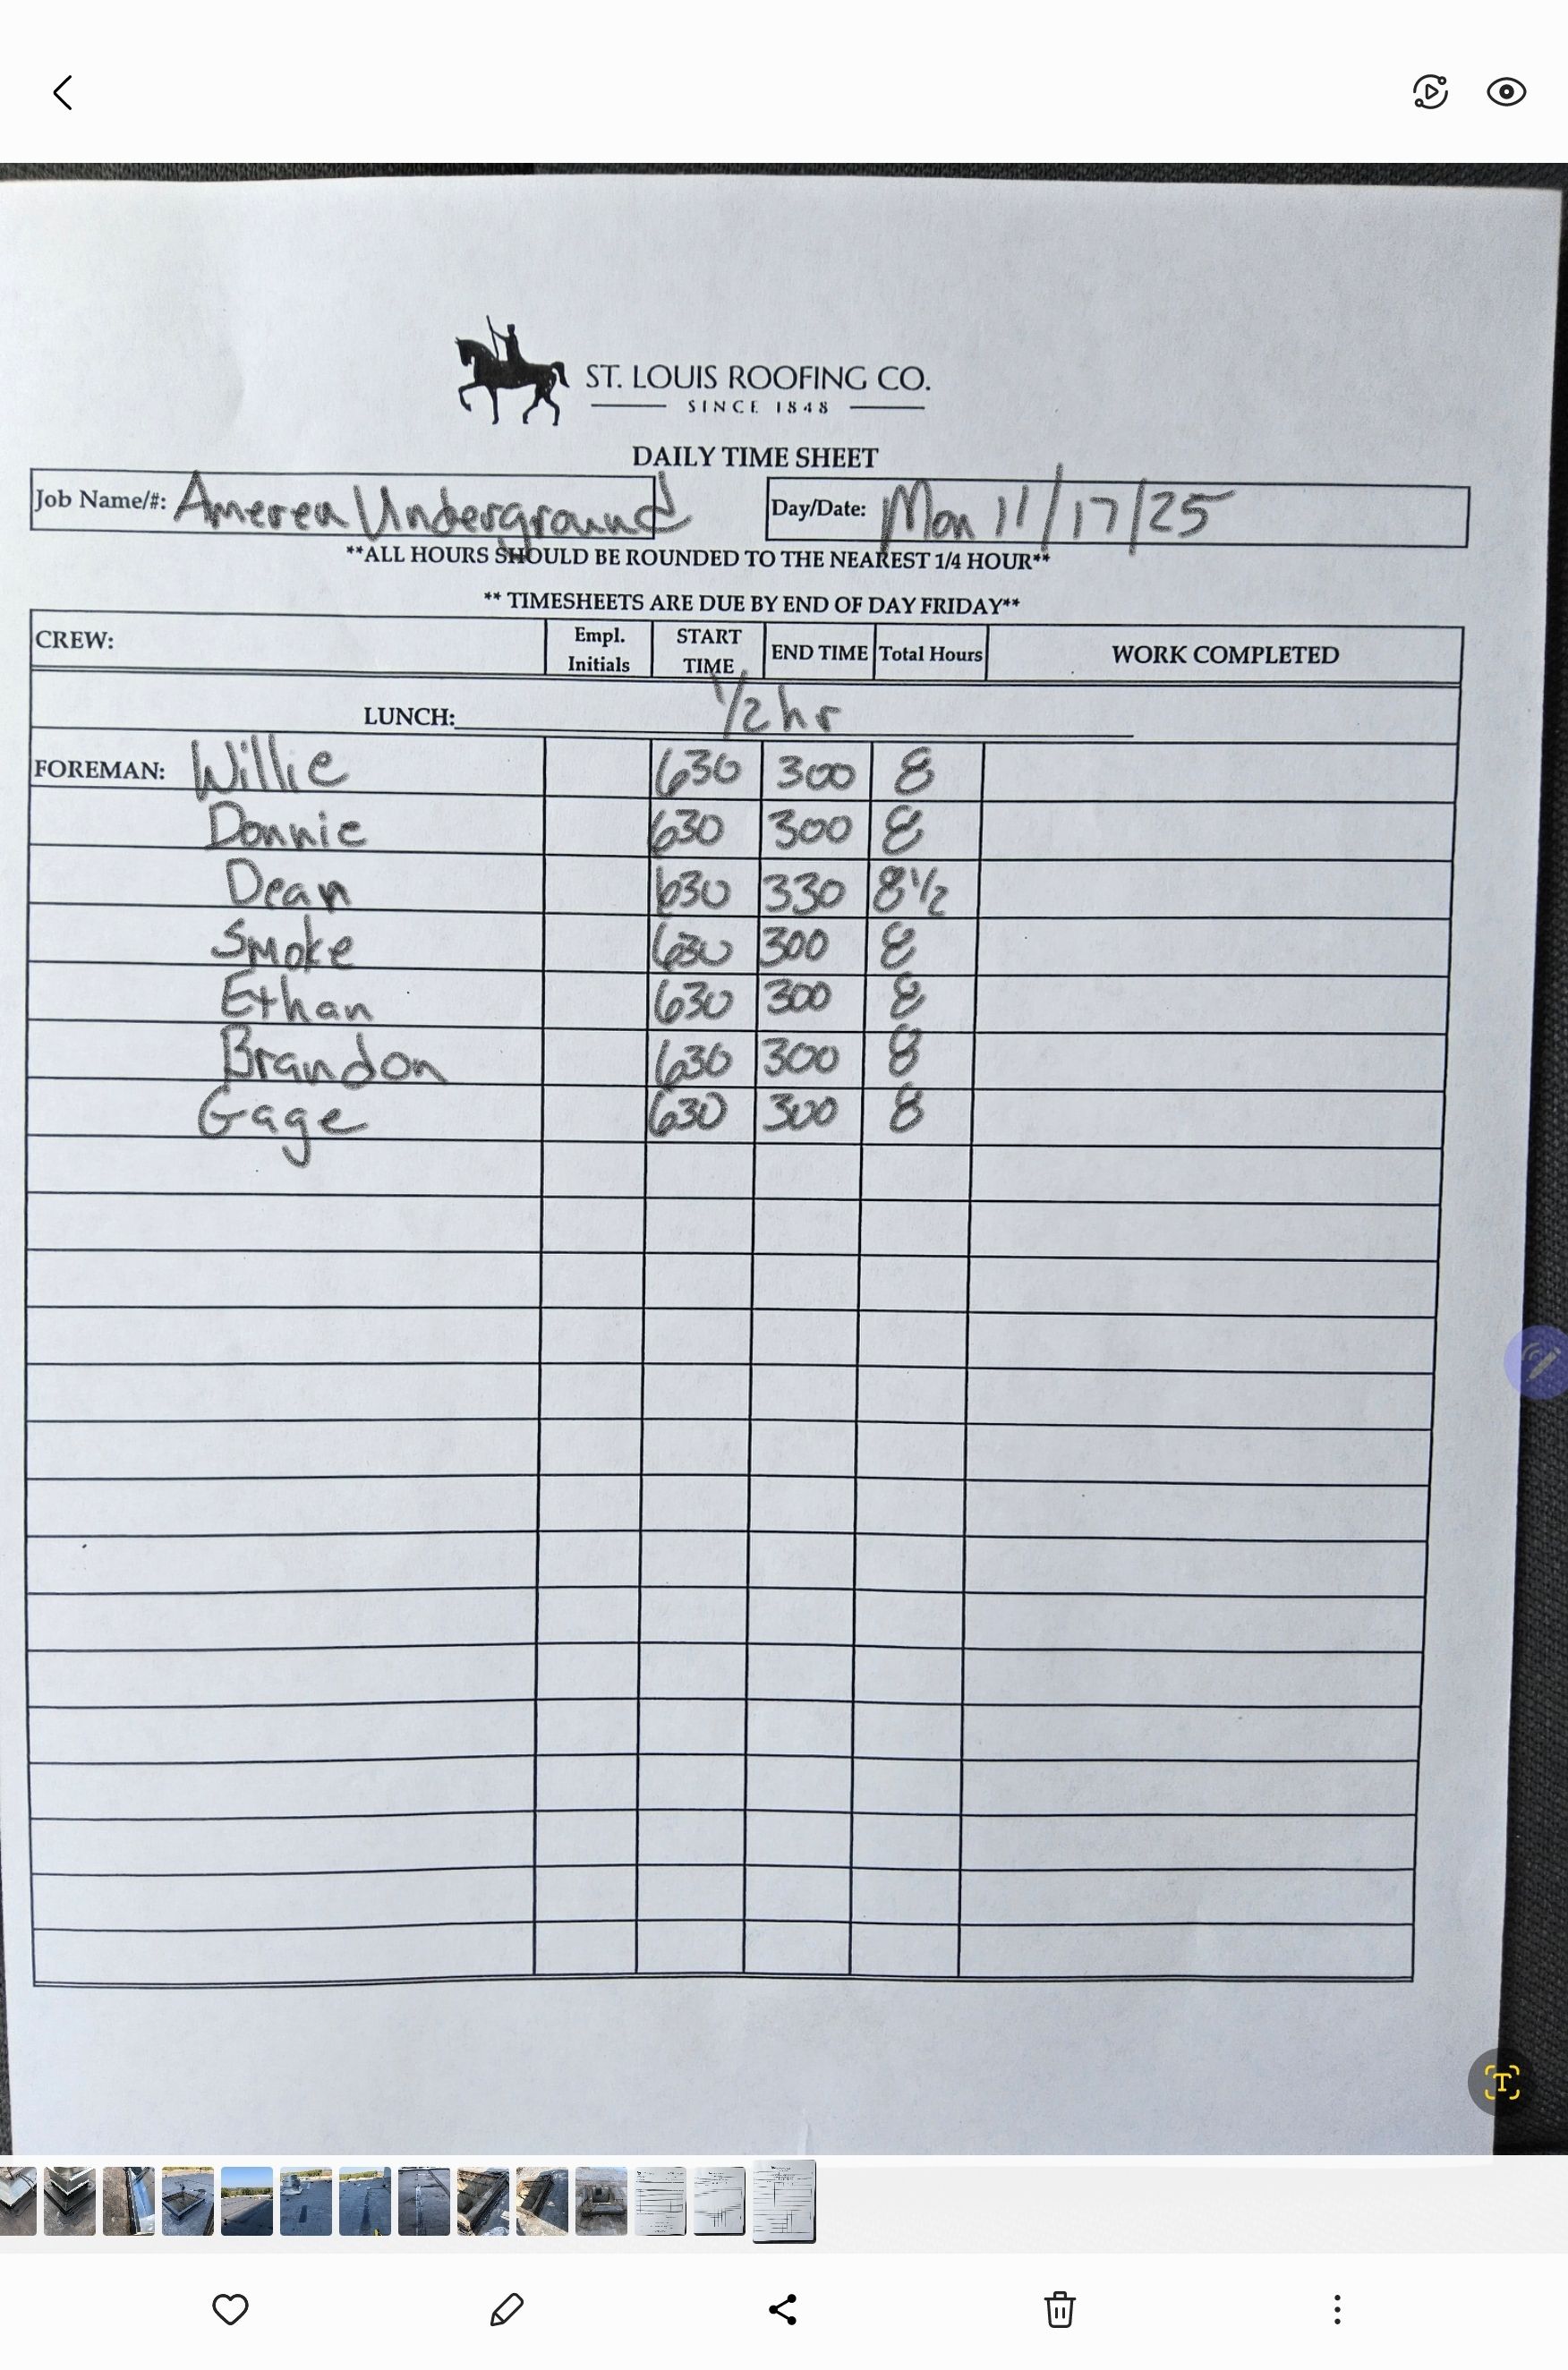 ST. LOUIS ROOFING CO.
SINCE 1848
DAILY TIME SHEET
Job Name/#: Ameren Underground Day/Date: Mon 11/17/25
**ALL HOURS SHOULD BE ROUNDED TO THE NEAREST 1/4 HOUR**
** TIMESHEETS ARE DUE BY END OF DAY FRIDAY**
CREW: Empl. Initials START TIME END TIME Total Hours WORK COMPLETED
LUNCH: 1/2 hr
FOREMAN: Willie 630 300 8
Donnie 630 300 8
Dean 630 330 8 1/2
Smoke 630 300 8
Ethan 630 300 8
Brandon 630 300 8
Gage 630 300 8
T